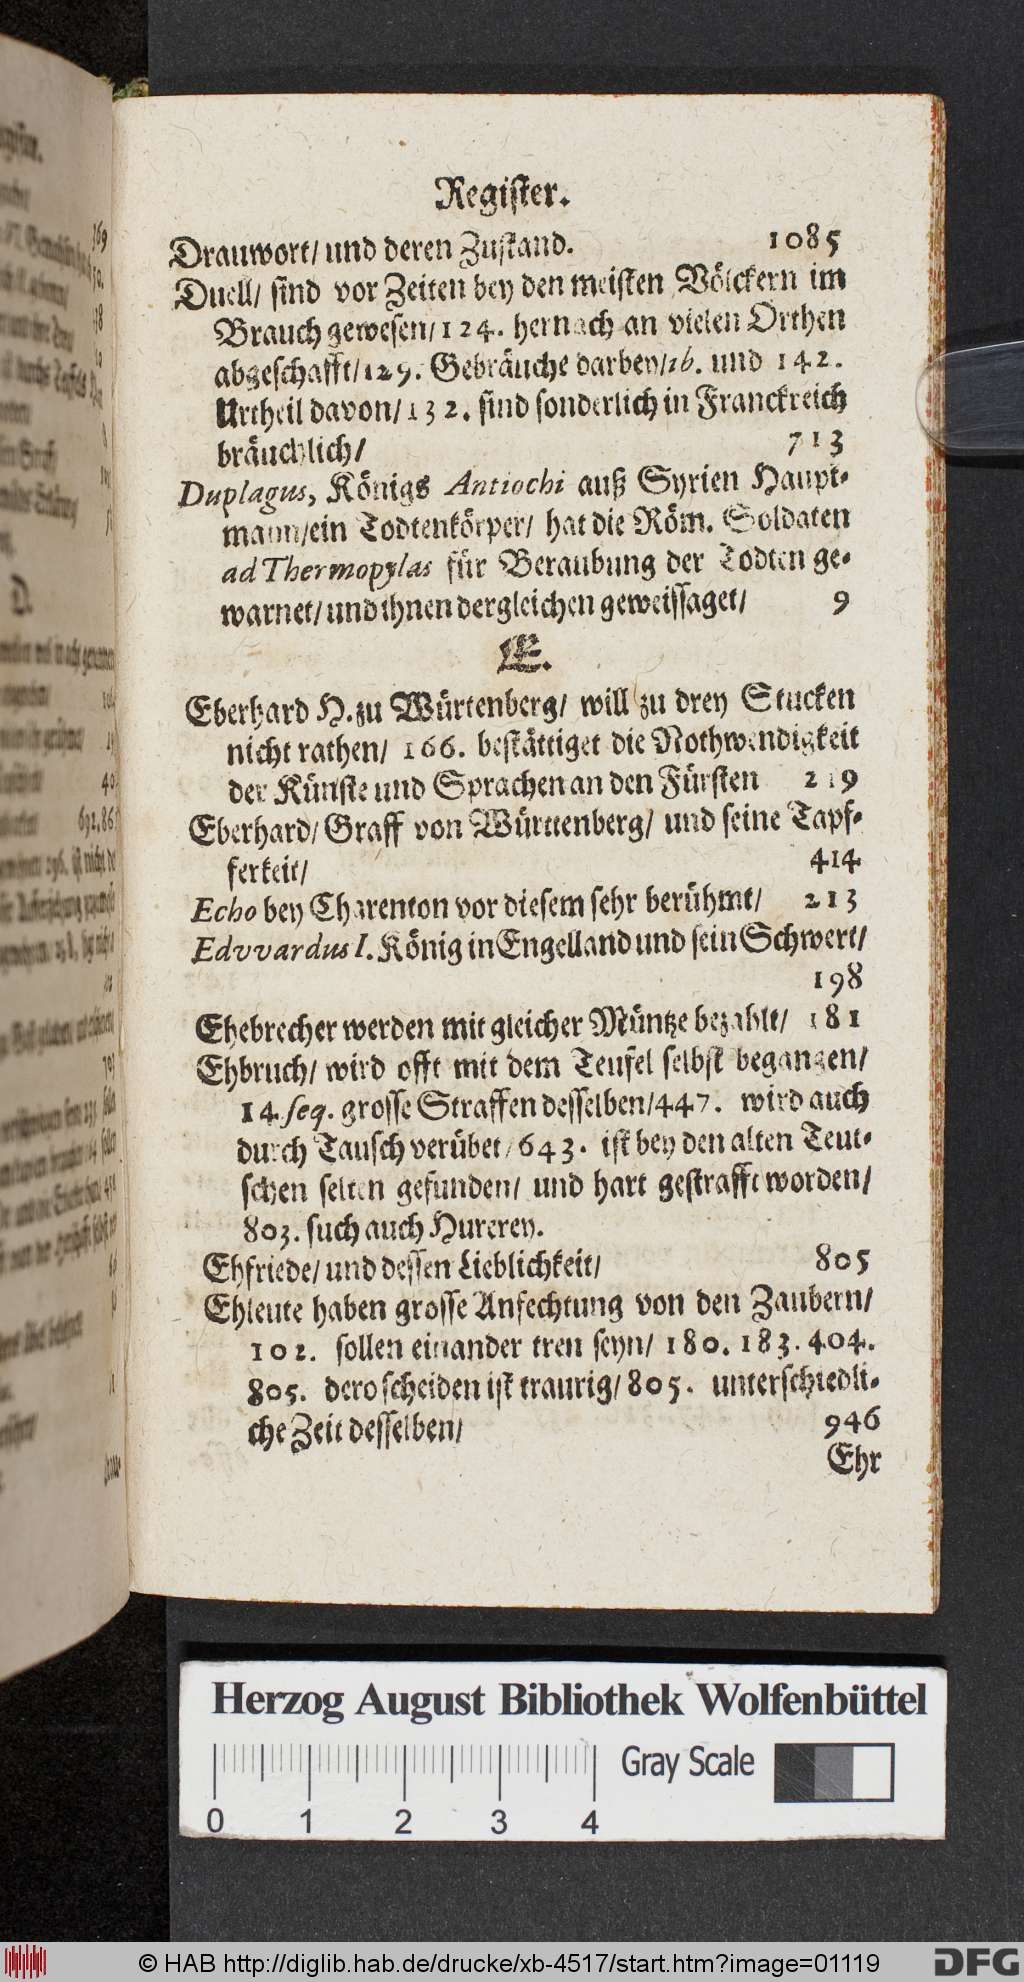 Register.
Drauwort/ und deren Zustand. 1085
Duell/ sind vor Zeiten bey den meisten Völckern im
Brauch gewesen/ 124. hernach an vielen Orthen
abgeschafft/ 129. Gebräuche darbey/ ib. und 142.
Urtheil davon/ 132. sind sonderlich in Franckreich
bräuchlich/ 713
Duplagus, Königs Antiochi auß Syrien Haupt-
mann/ ein Todtenkörper/ hat die Röm. Soldaten
ad Thermopylas für Beraubung der Todten ge-
warnet/ und ihnen dergleichen geweissaget/ 9
E.
Eberhard H. zu Würtenberg/ will zu drey Stucken
nicht rathen/ 166. bestättiget die Nothwendigkeit
der Künste und Sprachen an den Fürsten 219
Eberhard/ Graff von Württenberg/ und seine Tapf-
ferkeit/ 414
Echo bey Charenton vor diesem sehr berühmt/ 213
Edvvardus I. König in Engelland und sein Schwert/
198
Ehebrecher werden mit gleicher Müntze bezahlt/ 181
Ehbruch/ wird offt mit dem Teufel selbst begangen/
14. seq. grosse Straffen desselben/ 447. wird auch
durch Tausch verübet/ 643. ist bey den alten Teut-
schen selten gefunden/ und hart gestrafft worden/
803. such auch Hurerey.
Ehfriede/ und dessen Lieblichkeit/ 805
Ehleute haben grosse Anfechtung von den Zaubern/
102. sollen einander treu seyn/ 180. 183. 404.
805. dero scheiden ist traurig/ 805. unterschiedli-
che Zeit desselben/ 946
Ehr
Herzog August Bibliothek Wolfenbüttel
Gray Scale
0 1 2 3 4
© HAB http://diglib.hab.de/drucke/xb-4517/start.htm?image=01119
DFG